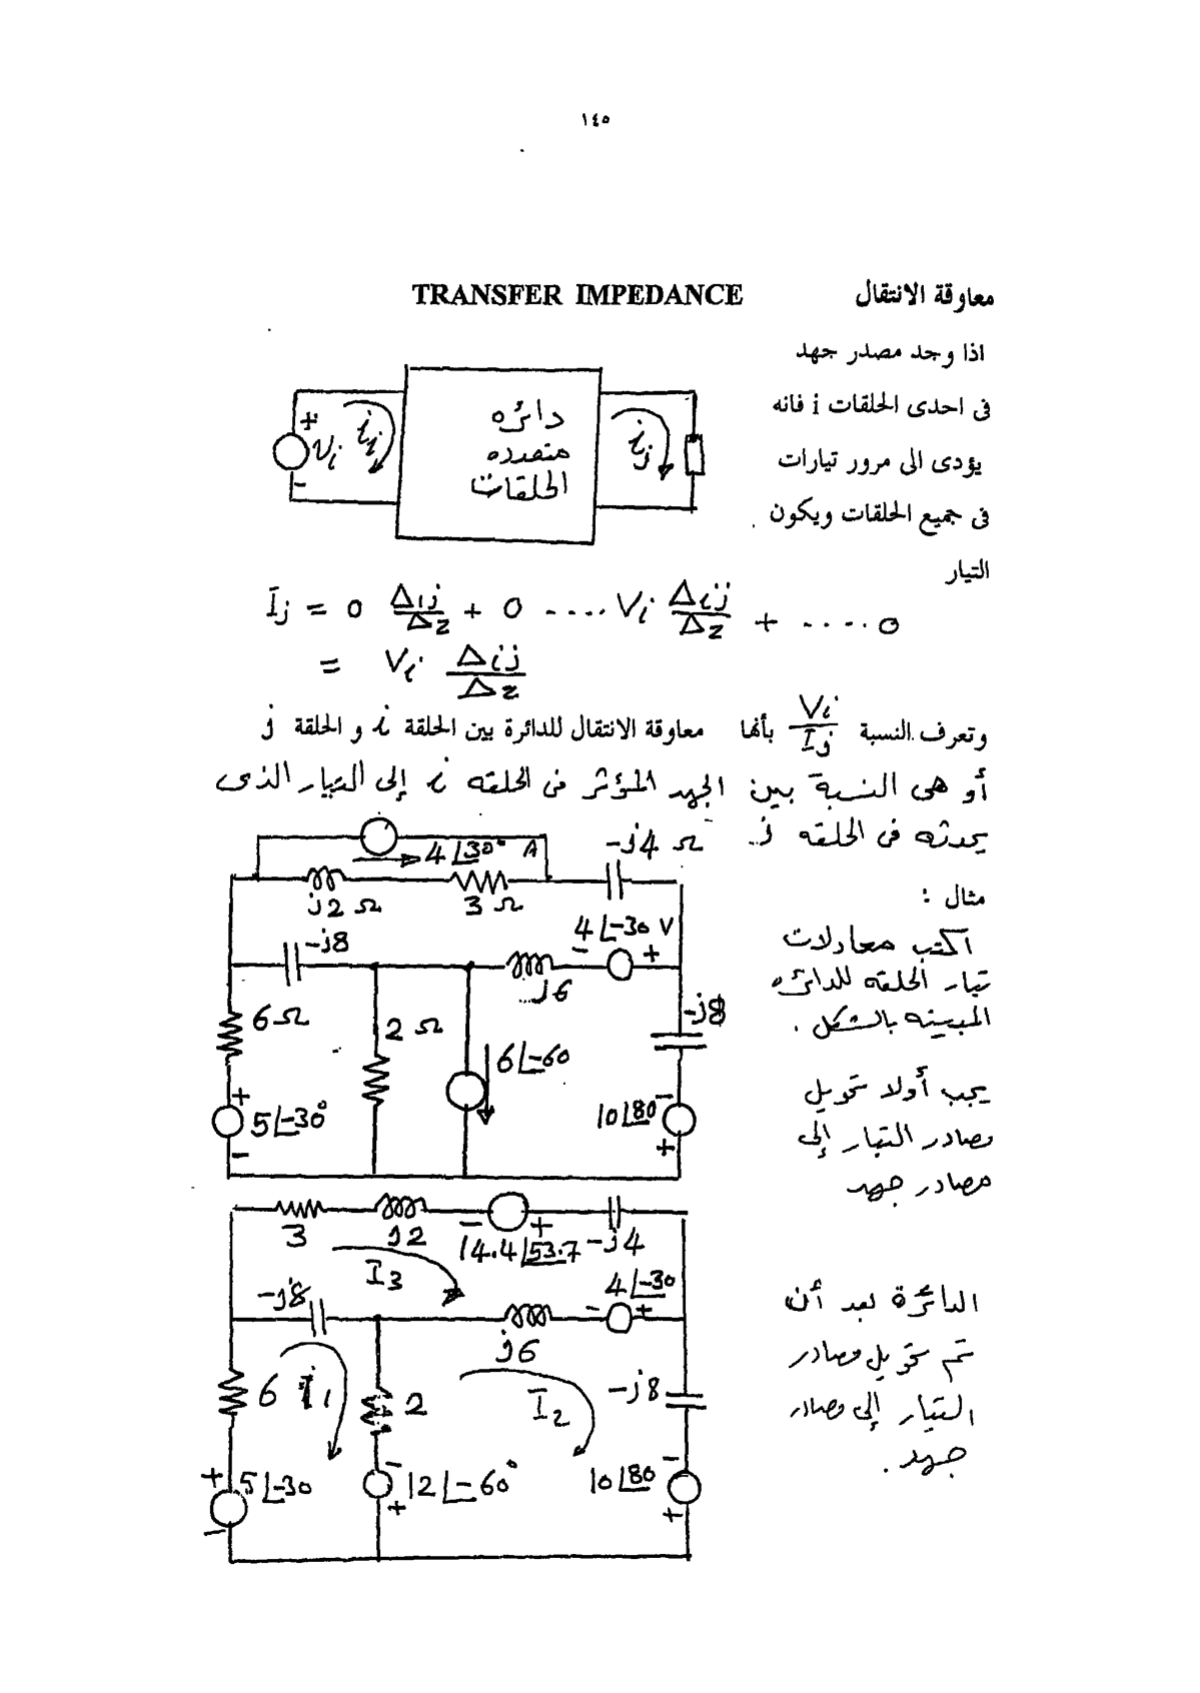 ١٤٥
معاوقة الانتقال TRANSFER IMPEDANCE
اذا وجد مصدر جهد
فى احدى الحلقات i فانه
يؤدى الى مرور تيارات
فى جميع الحلقات ويكون
التيار
+ Vi - ii
دائره
متعدده
الحلقات
ij
Ij = 0 Δ1j/Δz + 0 .... Vi Δij/Δz + ..... 0
= Vi Δij/Δz
وتعرف النسبة Vi/Ij بأنها معاوقة الانتقال للدائرة بين الحلقة i و الحلقة j
أو هى النسبة بين الجهد المؤثر فى الحلقه i إلى التيار الذى
يحدثه فى الحلقه j.
مثال :
اكتب معادلات
تيار الحلقه للدائره
المبينه بالشكل .
يجب أولا تحويل
مصادر التيار إلى
مصادر جهد
4∠30° A
-j4 Ω
j2 Ω 3 Ω
4∠-30 V
- +
-j8
j6
6Ω 2 Ω -j8
6∠-60
+ 5∠-30° -
10∠80 - +
3 j2 - + 14.4∠53.7 -j4
I3
4∠-30
-j8 - +
j6
6 I1 2 I2 -j8
+ 5∠-30 -
- 12∠-60° +
10∠80 - +
الدائرة بعد أن
تم تحويل مصادر
التيار إلى مصادر
جهد .